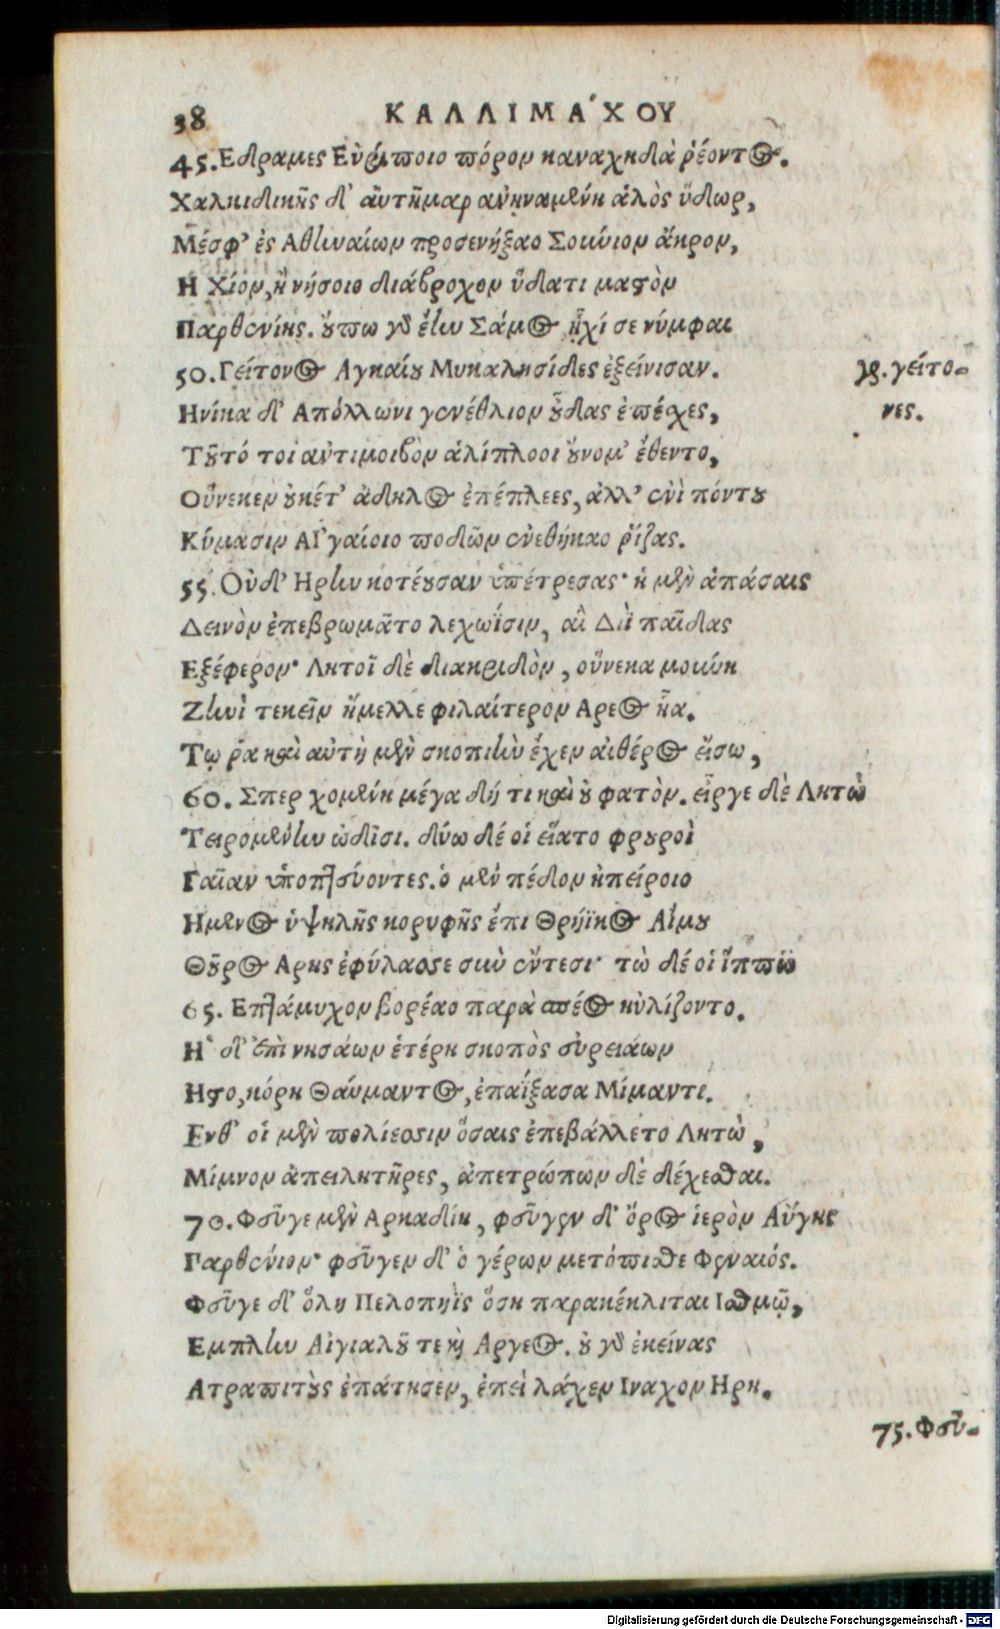 38 ΚΑΛΛΙΜΑ΄ΧΟΥ
45. Εδραμες Εὐρίποιο πόρον καναχηδὰ ῥέοντος.
Χαλκιδικῆς δ' αὐτῆμαρ ανῃναμένη ἁλὸς ὕδωρ,
Μέσφ' ἐς Αθηναίων προσενήξαο Σούνιον ἄκρον,
Η Χίον, ἢ νήσοιο διάβροχον ὕδατι μαστὸν
Παρθενίης. οὔπω γὰρ ἔην Σάμος, ἧχί σε νύμφαι
50. Γείτονος Αγκαίου Μυκαλησίδες ἐξείνισαν.
γρ. γείτο-
νες.
Ηνίκα δ' Απόλλωνι γενέθλιον οὖδας ἐπέσχες,
Τοῦτό τοι αὐτιμοιβὸν ἁλίπλοοι οὔνομ' ἔθεντο,
Οὕνεκεν οὐκέτ' ἄδηλος ἐπέπλεες, ἀλλ' ἐνὶ πόντου
Κύμασιν ΑΙ'γαίοιο ποδῶν ἐνεθήκαο ῥίζας.
55. Οὐδ' Ηρην κοτέουσαν ὑπέτρεσας· ἡ μὲν ἁπάσαις
Δεινὸν ἐπεβρωμᾶτο λεχωΐσιν, αἳ Διῒ παῖδας
Εξέφερον· Λητοῖ δὲ διακριδὸν, οὕνεκα μούνη
Ζηνὶ τεκεῖν ἤμελλε φιλαίτερον Αρεος ἧα.
Τῳ ῥα καὶ αὐτὴ μὲν σκοπιὴν ἔχεν αἰθέρος εἴσω,
60. Σπερ χομένη μέγα δή τι καὶ οὐ φατὸν. εἶργε δὲ Λητὼ
Τειρομένην ὠδῖσι. δύω δέ οἱ εἵατο φρουροὶ
Γαῖαν ὑποπτεύοντες. ὁ μὲν πέδον ἠπείροιο
Ημενος ὑψηλῆς κορυφῆς ἔπι Θρήϊκος Αἵμου
Θοῦρος Αρης ἐφύλασσε σὺν ἔντεσι· τὼ δέ οἱ ἵππω
65. Επτάμυχον βορέαο παρὰ σπέος ηὐλίζοντο.
Η' δ' ἐπὶ νησάων ἑτέρη σκοπὸς εὐρειάων
Ηστο, κόρη Θαύμαντος, ἐπαΐξασα Μίμαντι.
Ενθ' οἱ μὲν πολίεσσιν ὅσαις ἐπεβάλλετο Λητὼ,
Μίμνον ἀπειλητῆρες, ἀπετρώπων δὲ δέχεσθαι.
70. Φεῦγε μὲν Αρκαδίη, φεῦγεν δ' ὄρος ἱερὸν Αὔγης
Παρθένιον· φεῦγεν δ' ὁ γέρων μετόπισθε Φεναιός.
Φεῦγε δ' ὅλη Πελοπηῒς ὅση παρακέκλιται Ισθμῷ,
Εμπλην Αἰγιαλοῦ τε καὶ Αργεος. οὐ γὰρ ἐκείνας
Ατραπιτοὺς ἐπάτησεν, ἐπεὶ λάχεν Ιναχον Ηρη.
75. Φεῦ-
Digitalisierung gefördert durch die Deutsche Forschungsgemeinschaft - DFG